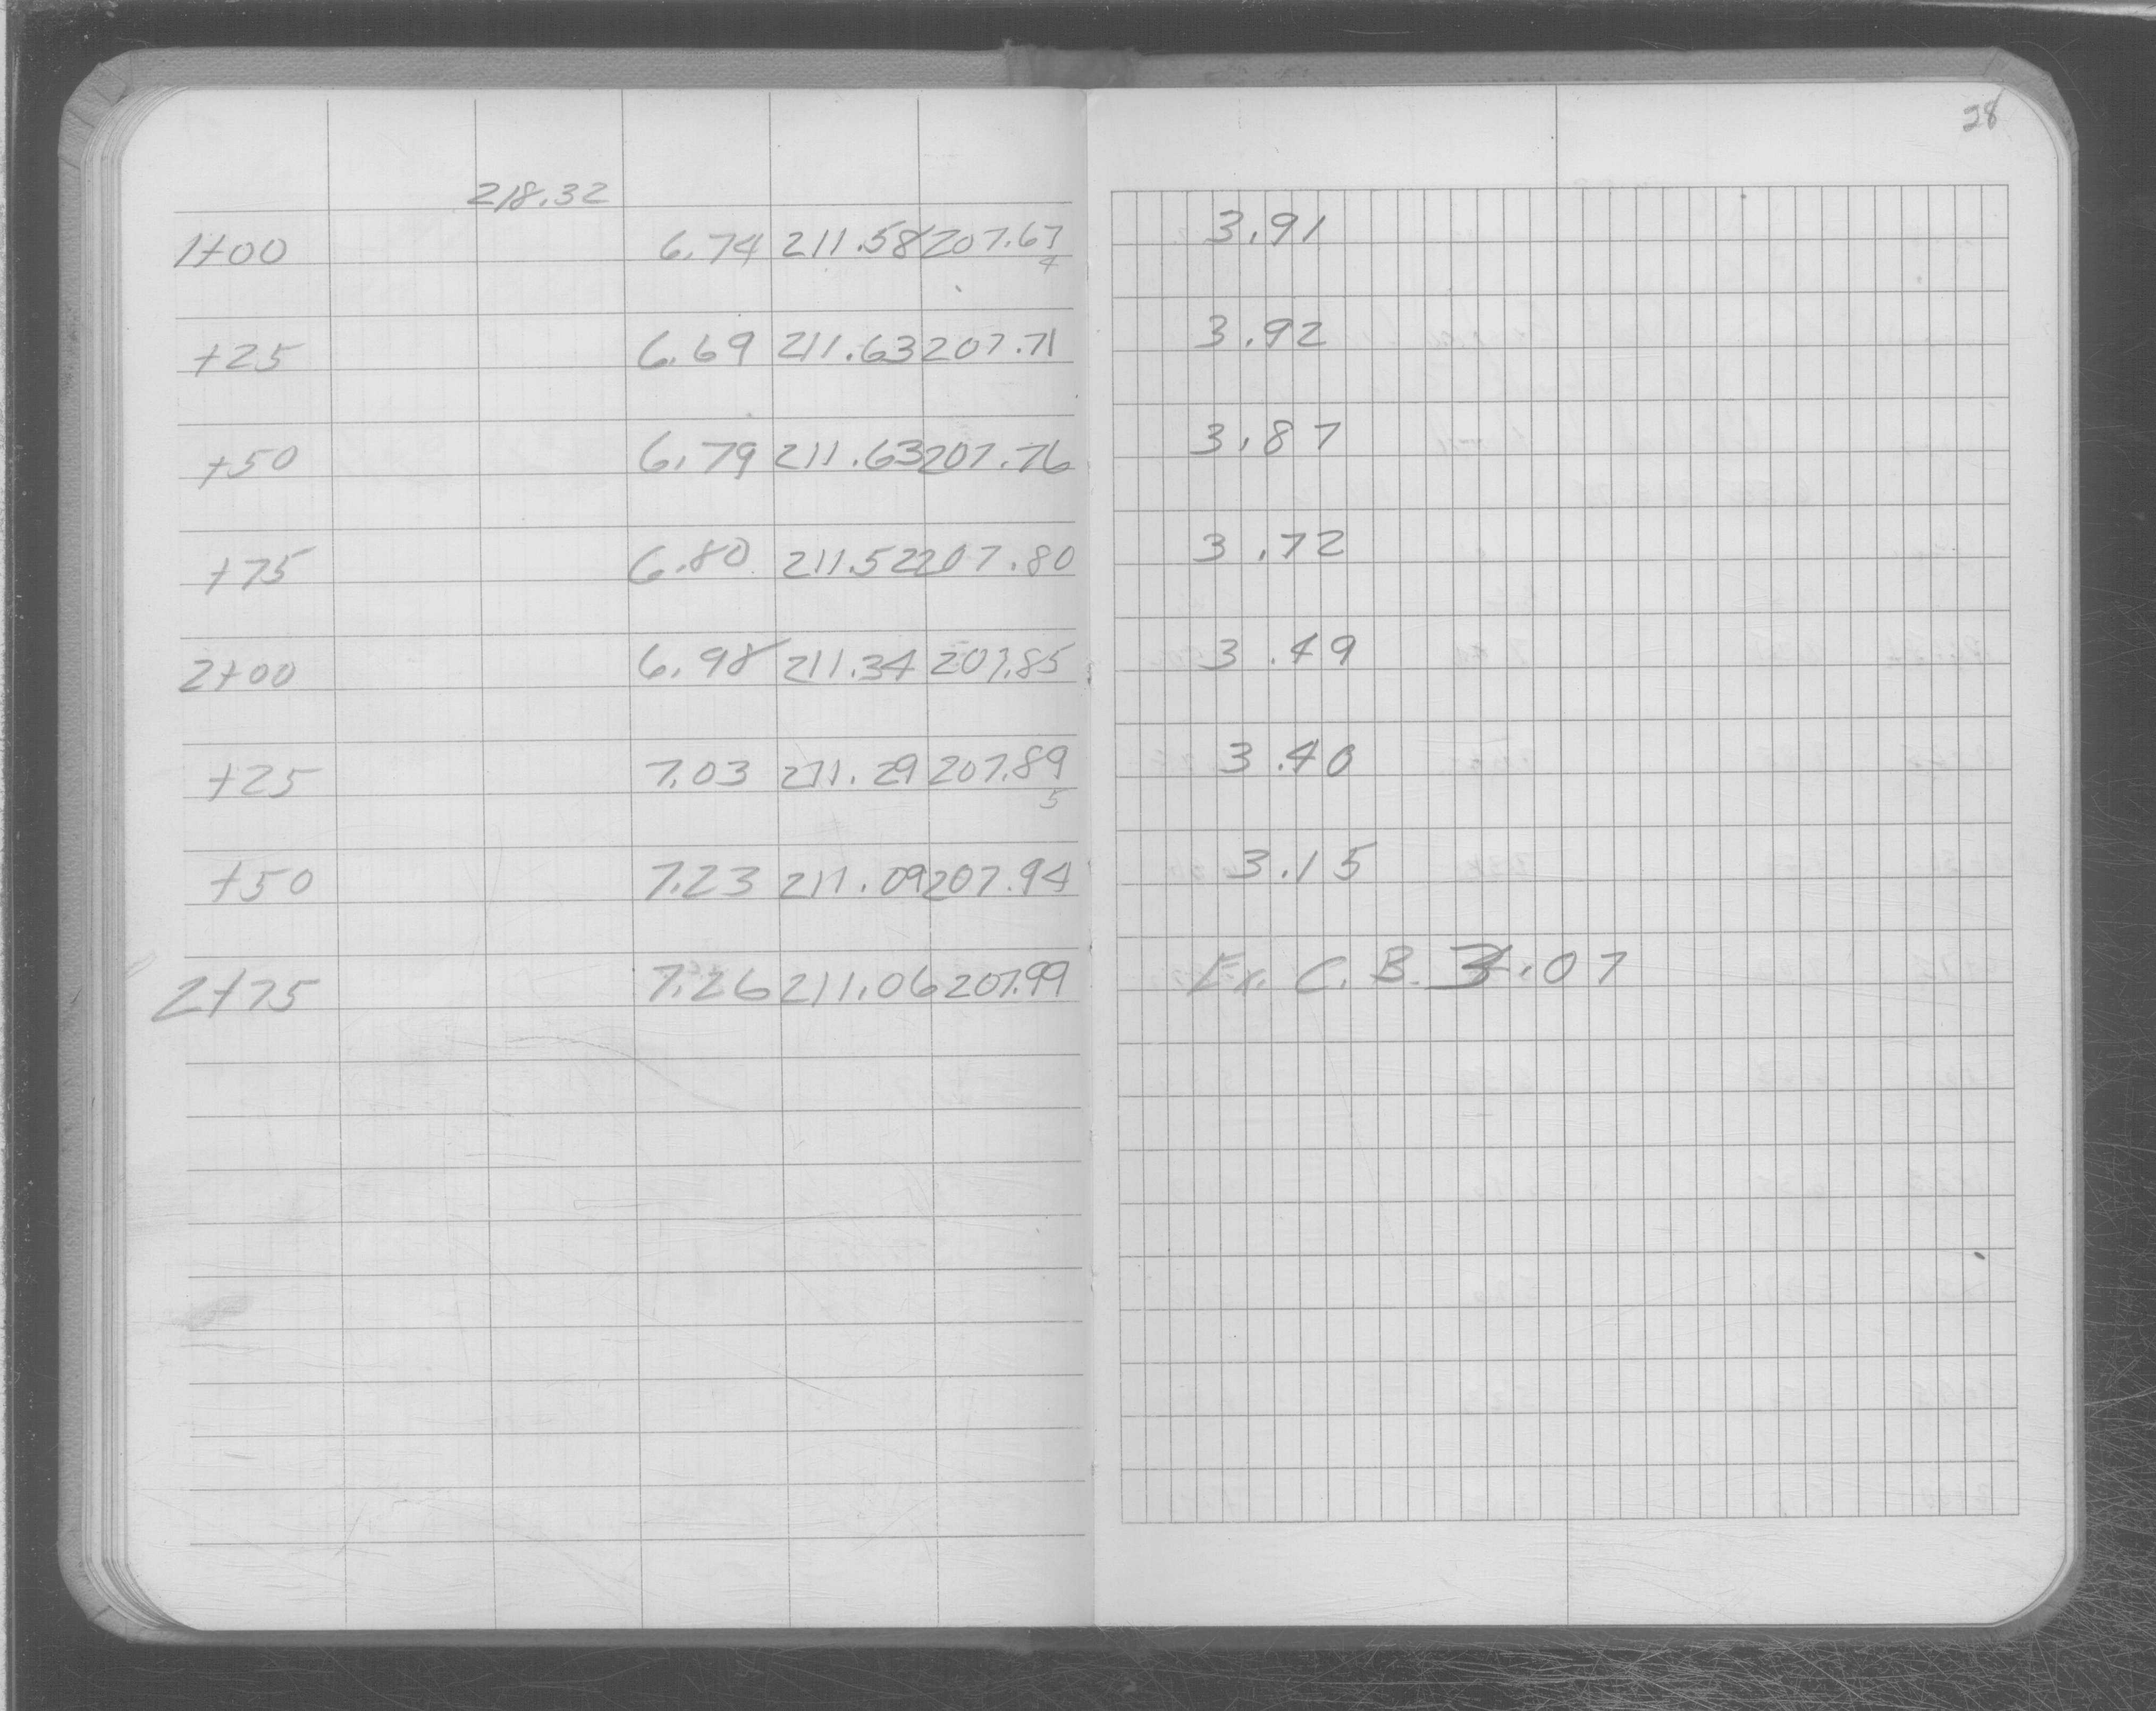 28
218.32
1+00 6.74 211.58 207.67 3.91
4
+25 6.69 211.63 207.71 3.92
+50 6.79 211.63 207.76 3.87
+75 6.80 211.52 207.80 3.72
2+00 6.98 211.34 207.85 3.49
+25 7.03 211.29 207.89 3.40
5
+50 7.23 211.09 207.94 3.15
2+75 7.26 211.06 207.99 Ex. C. B. 3.07